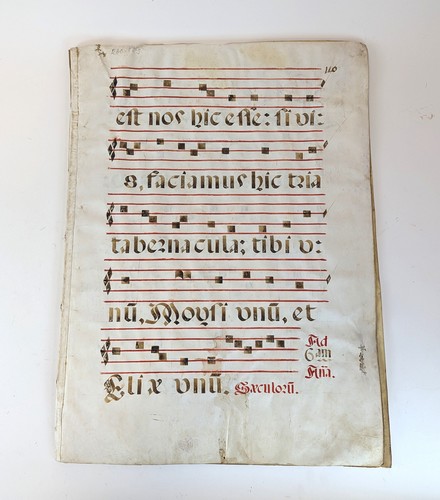 110
est nos hic esse: si vi:
s, faciamus hic tria
tabernacula; tibi v:
nū, Moysi vnū, et
Eliæ vnū. Sæculorū.
Ad
6am
Añā.